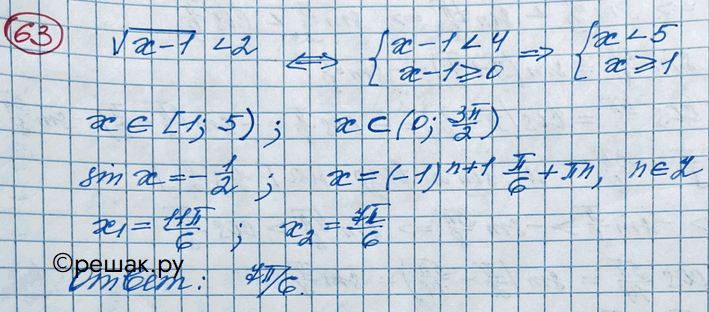 63 √x-1 < 2 ⟺ { x-1 < 4 x-1 ≥ 0 ⇒ { x < 5 x ≥ 1
x ∈ [1; 5) ; x ⊂ (0; 3π/2)
sin x = -1/2 ; x = (-1)^n+1 π/6 + πn, n ∈ Z
x1 = 11π/6 ; x2 = 7π/6
©решак.ру
Ответ: 7π/6.